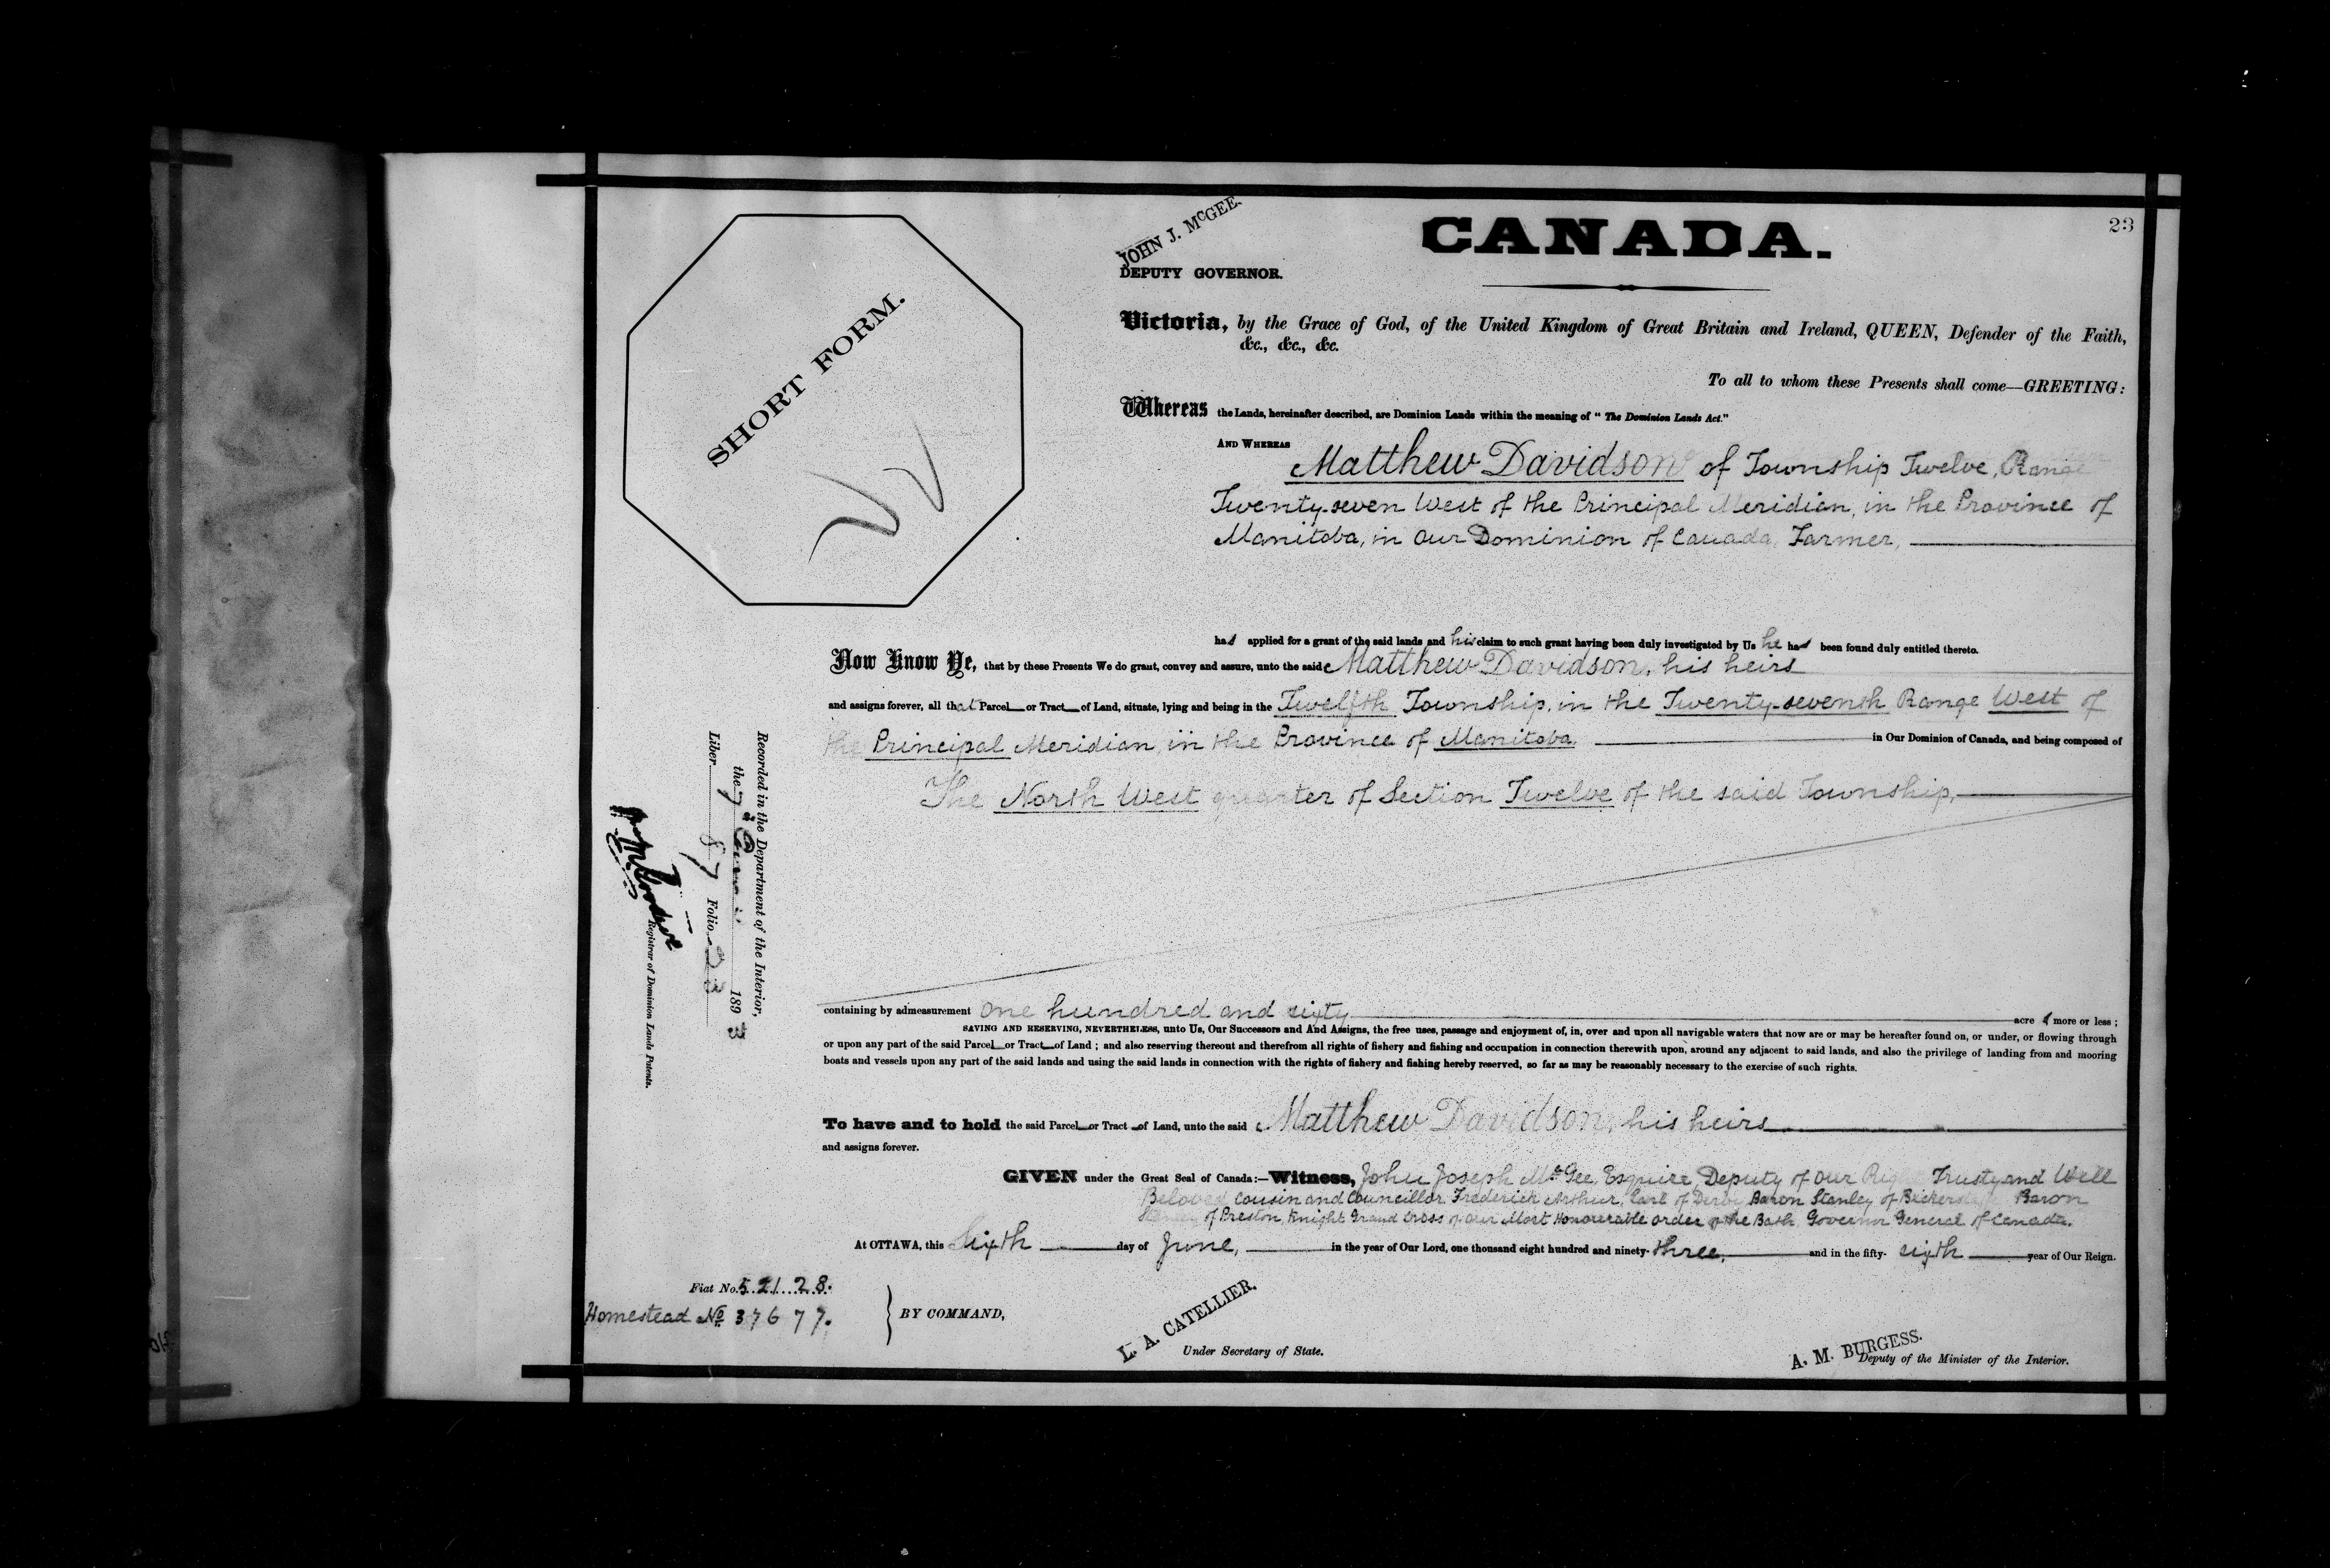 23
CANADA.
JOHN J. McGEE.
DEPUTY GOVERNOR.
SHORT FORM.
Victoria, by the Grace of God, of the United Kingdom of Great Britain and Ireland, QUEEN, Defender of the Faith,
&c., &c., &c.
To all to whom these Presents shall come—GREETING:
Whereas the Lands, hereinafter described, are Dominion Lands within the meaning of "The Dominion Lands Act."
AND WHEREAS
Matthew Davidson of Township Twelve, Range
Twenty-seven West of the Principal Meridian, in the Province of
Manitoba, in Our Dominion of Canada, Farmer,
has applied for a grant of the said lands and his claim to such grant having been duly investigated by Us he has been found duly entitled thereto.
Now Know Ye, that by these Presents We do grant, convey and assure, unto the said Matthew Davidson, his heirs
and assigns forever, all that Parcel or Tract of Land, situate, lying and being in the Twelfth Township, in the Twenty-seventh Range West of
the Principal Meridian, in the Province of Manitoba, in Our Dominion of Canada, and being composed of
The North West quarter of Section Twelve of the said Township,
containing by admeasurement one hundred and sixty acres more or less;
SAVING AND RESERVING, NEVERTHELESS, unto Us, Our Successors and And Assigns, the free uses, passage and enjoyment of, in, over and upon all navigable waters that now are or may be hereafter found on, or under, or flowing through
or upon any part of the said Parcel or Tract of Land; and also reserving thereout and therefrom all rights of fishery and fishing and occupation in connection therewith upon, around any adjacent to said lands, and also the privilege of landing from and mooring
boats and vessels upon any part of the said lands and using the said lands in connection with the rights of fishery and fishing hereby reserved, so far as may be reasonably necessary to the exercise of such rights.
To have and to hold the said Parcel or Tract of Land, unto the said Matthew Davidson, his heirs
and assigns forever.
GIVEN under the Great Seal of Canada:—Witness, John Joseph McGee, Esquire, Deputy of Our Right Trusty and Well
Beloved Cousin and Councillor Frederick Arthur, Earl of Derby Baron Stanley of Bickerstaffe Baron
Stanley of Preston, Knight Grand Cross of Our Most Honourable Order of the Bath Governor General of Canada.
At OTTAWA, this Sixth day of June, in the year of Our Lord, one thousand eight hundred and ninety-three, and in the fifty-sixth year of Our Reign.
Fiat No. 52128.
Homestead No 37677.
BY COMMAND,
L. A. CATELLIER.
Under Secretary of State.
A. M. BURGESS.
Deputy of the Minister of the Interior.
Recorded in the Department of the Interior,
the 7 1893
Liber 87 Folio 23
Registrar of Dominion Lands Patents.